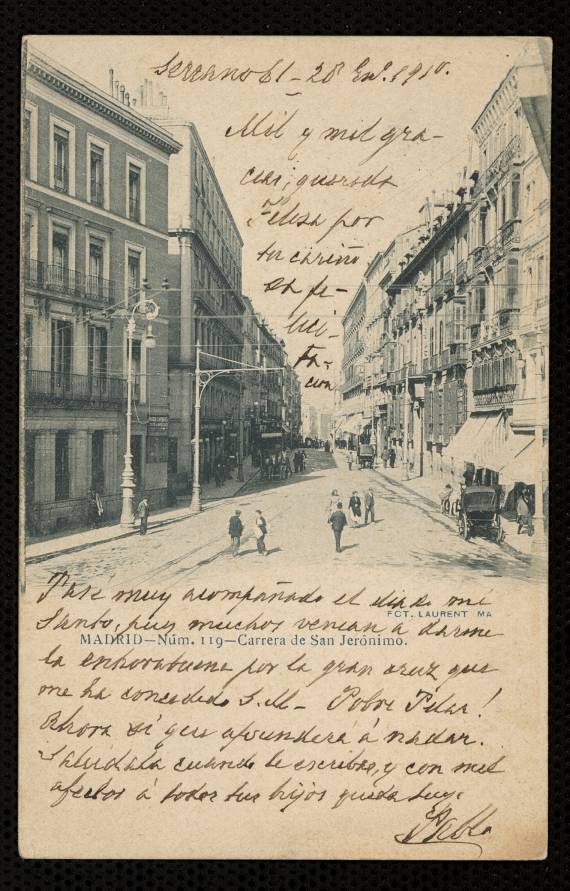 Serrano 61 - 28 En. 1910.
Mil y mil gra-
cias, querida
Felisa por
tu cariño
sa fe-
lici-
ta-
cion
Pasé muy acompañado el día de mi
FOT. LAURENT MA
Santo, pues muchos venian a darme
MADRID—Núm. 119—Carrera de San Jerónimo.
la enhorabuena por la gran cruz que
me ha concedido S. M— Pobre Pilar!
Ahora sí que aprenderá á nadar.
Saludala cuando le escribas, y con mil
afectos á todos tus hijos queda tuyo
Pablo